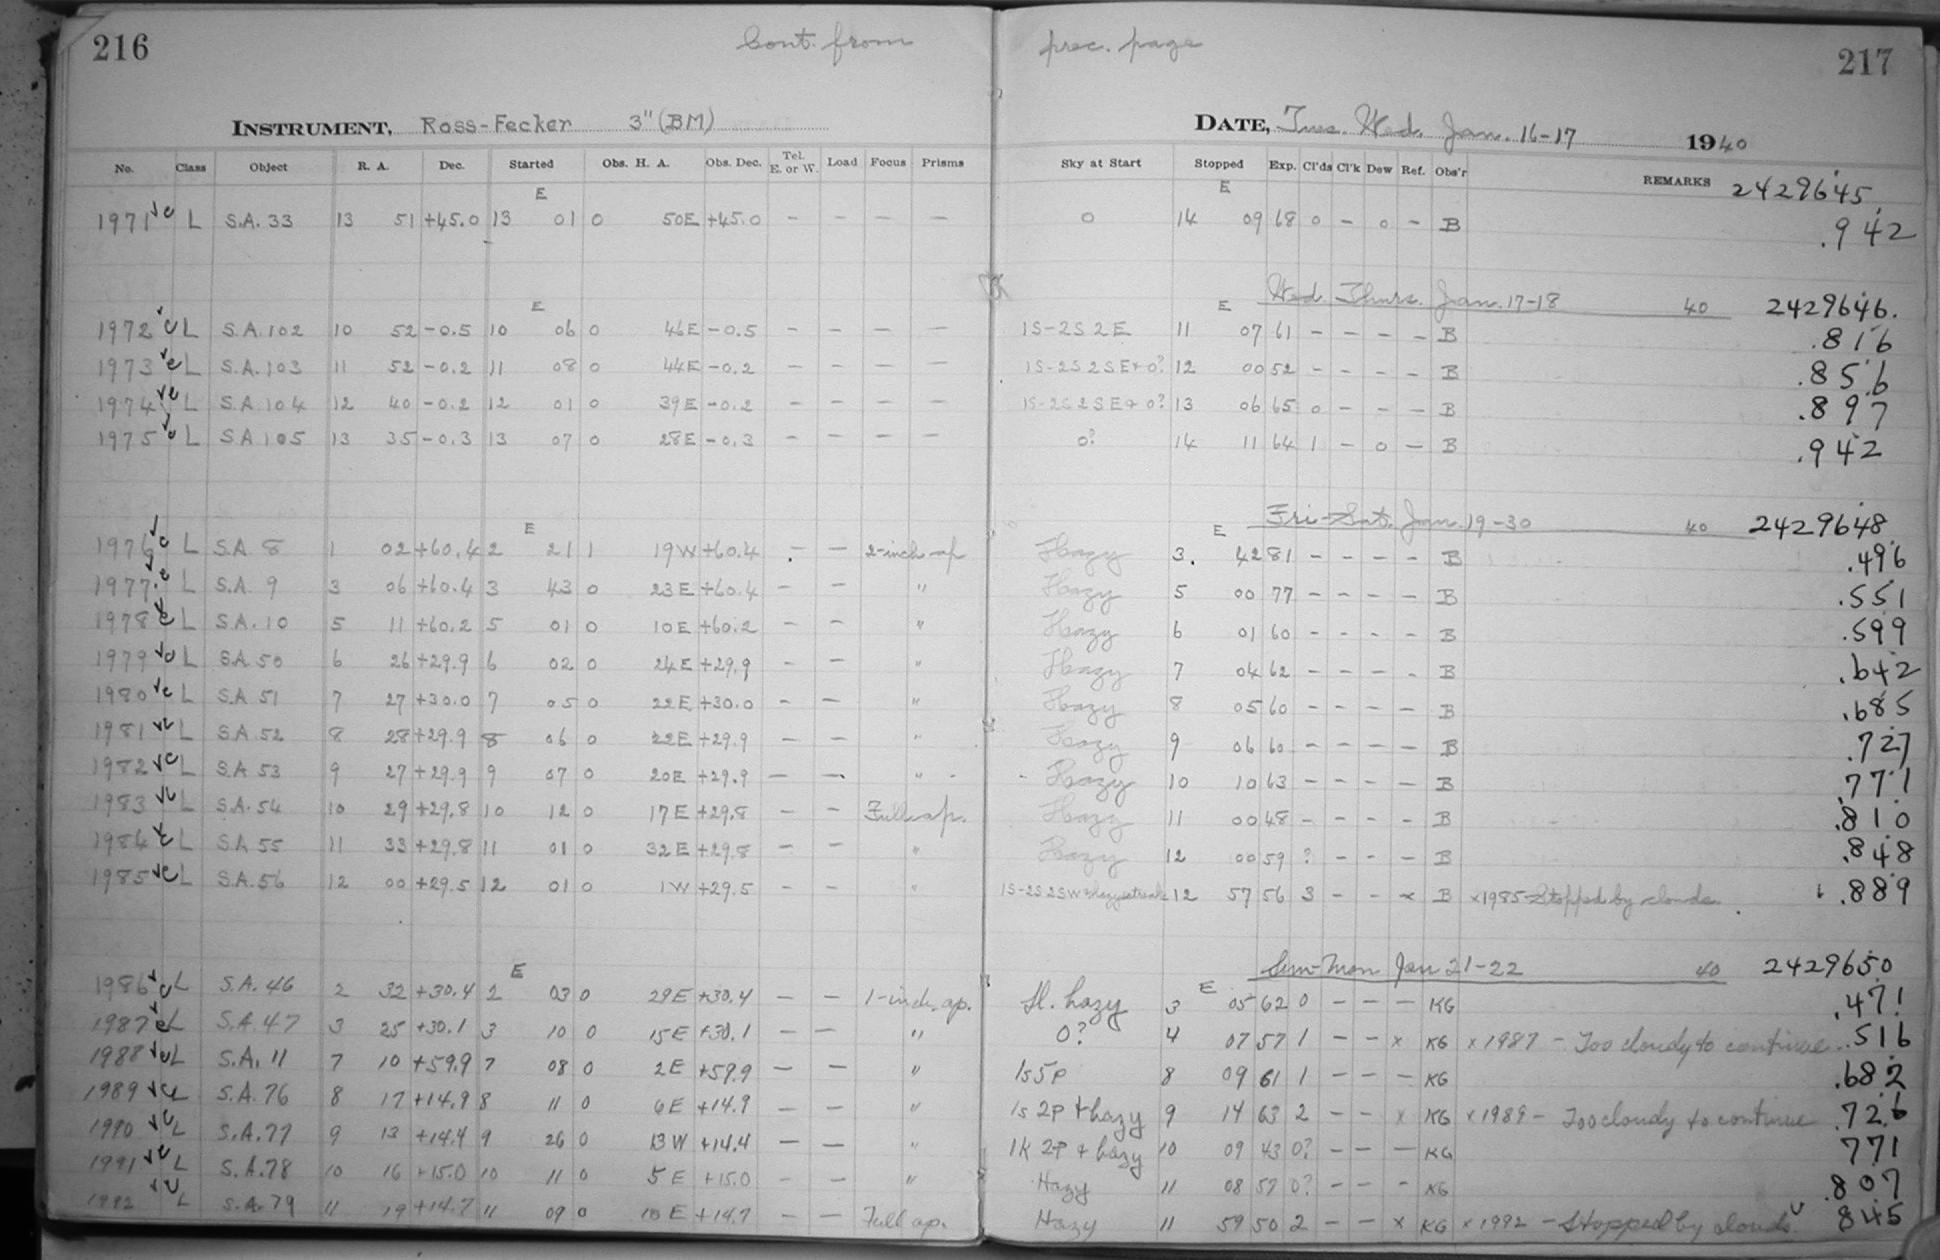 216 Cont. from prec. page 217
INSTRUMENT, Ross-Fecker 3" (BM) DATE, Tues. Wed. Jan. 16-17 1940
No. Class Object R. A. Dec. Started Obs. H. A. Obs. Dec. Tel. E. or W. Load Focus Prisms Sky at Start Stopped Exp. Cl'ds Cl'k Dew Ref. Obs'r REMARKS 2429645.
E E
1971 L S.A. 33 13 51 +45.0 13 01 0 50E +45.0 - - - - 0 14 09 68 0 - 0 - B .942
E E Wed. Thurs. Jan. 17-18 40 2429646.
1972 L S.A. 102 10 52 -0.5 10 06 0 46E -0.5 - - - - 1S-2S 2E 11 07 61 - - - - B .816
1973 L S.A. 103 11 52 -0.2 11 08 0 44E -0.2 - - - - 1S-2S 2SE+0? 12 00 52 - - - - B .856
1974 L S.A. 104 12 40 -0.2 12 01 0 39E -0.2 - - - - 1S-2S 2SE+0? 13 06 65 0 - - - B .897
1975 L SA 105 13 35 -0.3 13 07 0 28E -0.3 - - - - 0? 14 11 64 1 - 0 - B .942
E E Fri-Sat. Jan. 19-30 40 2429648
1976 L S.A. 8 1 02 +60.4 2 21 1 19W +60.4 - - 2-inch ap Hazy 3. 42 81 - - - - B .496
1977 L S.A. 9 3 06 +60.4 3 43 0 23E +60.4 - - " Hazy 5 00 77 - - - - B .551
1978 L S.A. 10 5 11 +60.2 5 01 0 10E +60.2 - - " Hazy 6 01 60 - - - - B .599
1979 L S.A. 50 6 26 +29.9 6 02 0 24E +29.9 - - " Hazy 7 04 62 - - - - B .642
1980 L S.A. 51 7 27 +30.0 7 05 0 22E +30.0 - - " Hazy 8 05 60 - - - - B .685
1981 L S.A. 52 8 28 +29.9 8 06 0 22E +29.9 - - " Hazy 9 06 60 - - - - B .727
1982 L S.A. 53 9 27 +29.9 9 07 0 20E +29.9 - - " Hazy 10 10 63 - - - - B .771
1983 L S.A. 54 10 29 +29.8 10 12 0 17E +29.8 - - Full ap. Hazy 11 00 48 - - - - B .810
1984 L S.A. 55 11 33 +29.8 11 01 0 32E +29.8 - - " Hazy 12 00 59 ? - - - B .848
1985 L S.A. 56 12 00 +29.5 12 01 0 1W +29.5 - - " 1S-2S 2SW+hazy streaks 12 57 56 3 - - x B x1985-Stopped by clouds. .889
E E Sun-Mon Jan 21-22 40 2429650
1986 L S.A. 46 2 32 +30.4 2 03 0 29E +30.4 - - 1-inch ap. Sl. hazy 3 05 62 0 - - - KG .471
1987 L S.A. 47 3 25 +30.1 3 10 0 15E +30.1 - - " 0? 4 07 57 1 - - x KG x1987 - Too cloudy to continue .516
1988 L S.A. 11 7 10 +59.9 7 08 0 2E +59.9 - - " 1s5p 8 09 61 1 - - - KG .682
1989 L S.A. 76 8 17 +14.9 8 11 0 6E +14.9 - - " 1s 2p + hazy 9 14 63 2 - - x KG x1989 - Too cloudy to continue .726
1990 L S.A. 77 9 13 +14.4 9 26 0 13W +14.4 - - " 1K 2P + hazy 10 09 43 0? - - - KG 771
1991 L S.A. 78 10 16 +15.0 10 11 0 5E +15.0 - - " Hazy 11 08 57 0? - - - KG .807
1992 L S.A. 79 11 19 +14.7 11 09 0 10E +14.7 - - Full ap. Hazy 11 59 50 2 - - x KG x1992 - Stopped by clouds 845